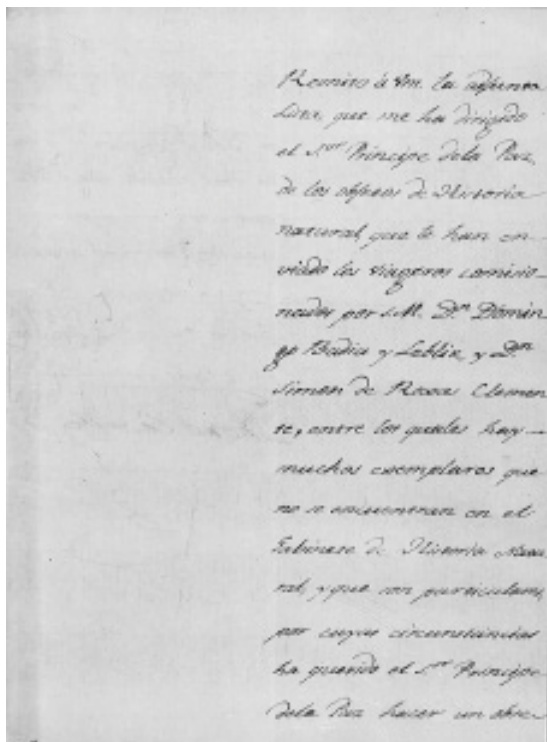 Remito á Vm. la adjunta
Lista, que me ha dirigido
el S.or Principe dela Paz,
de los objetos de Historia
natural, que le han en
viado los viageros comisio-
nados por S.M. D.n Domin
go Badia y Leblix, y D.n
Simon de Roxas Clemen
te, entre los quales hay
muchos exemplares que
no se encuentran en el
Gabinete de Historia Natu
ral, y que son particulares,
por cuyas circunstancias
ha querido el S.or Principe
dela Paz hacer un obse-